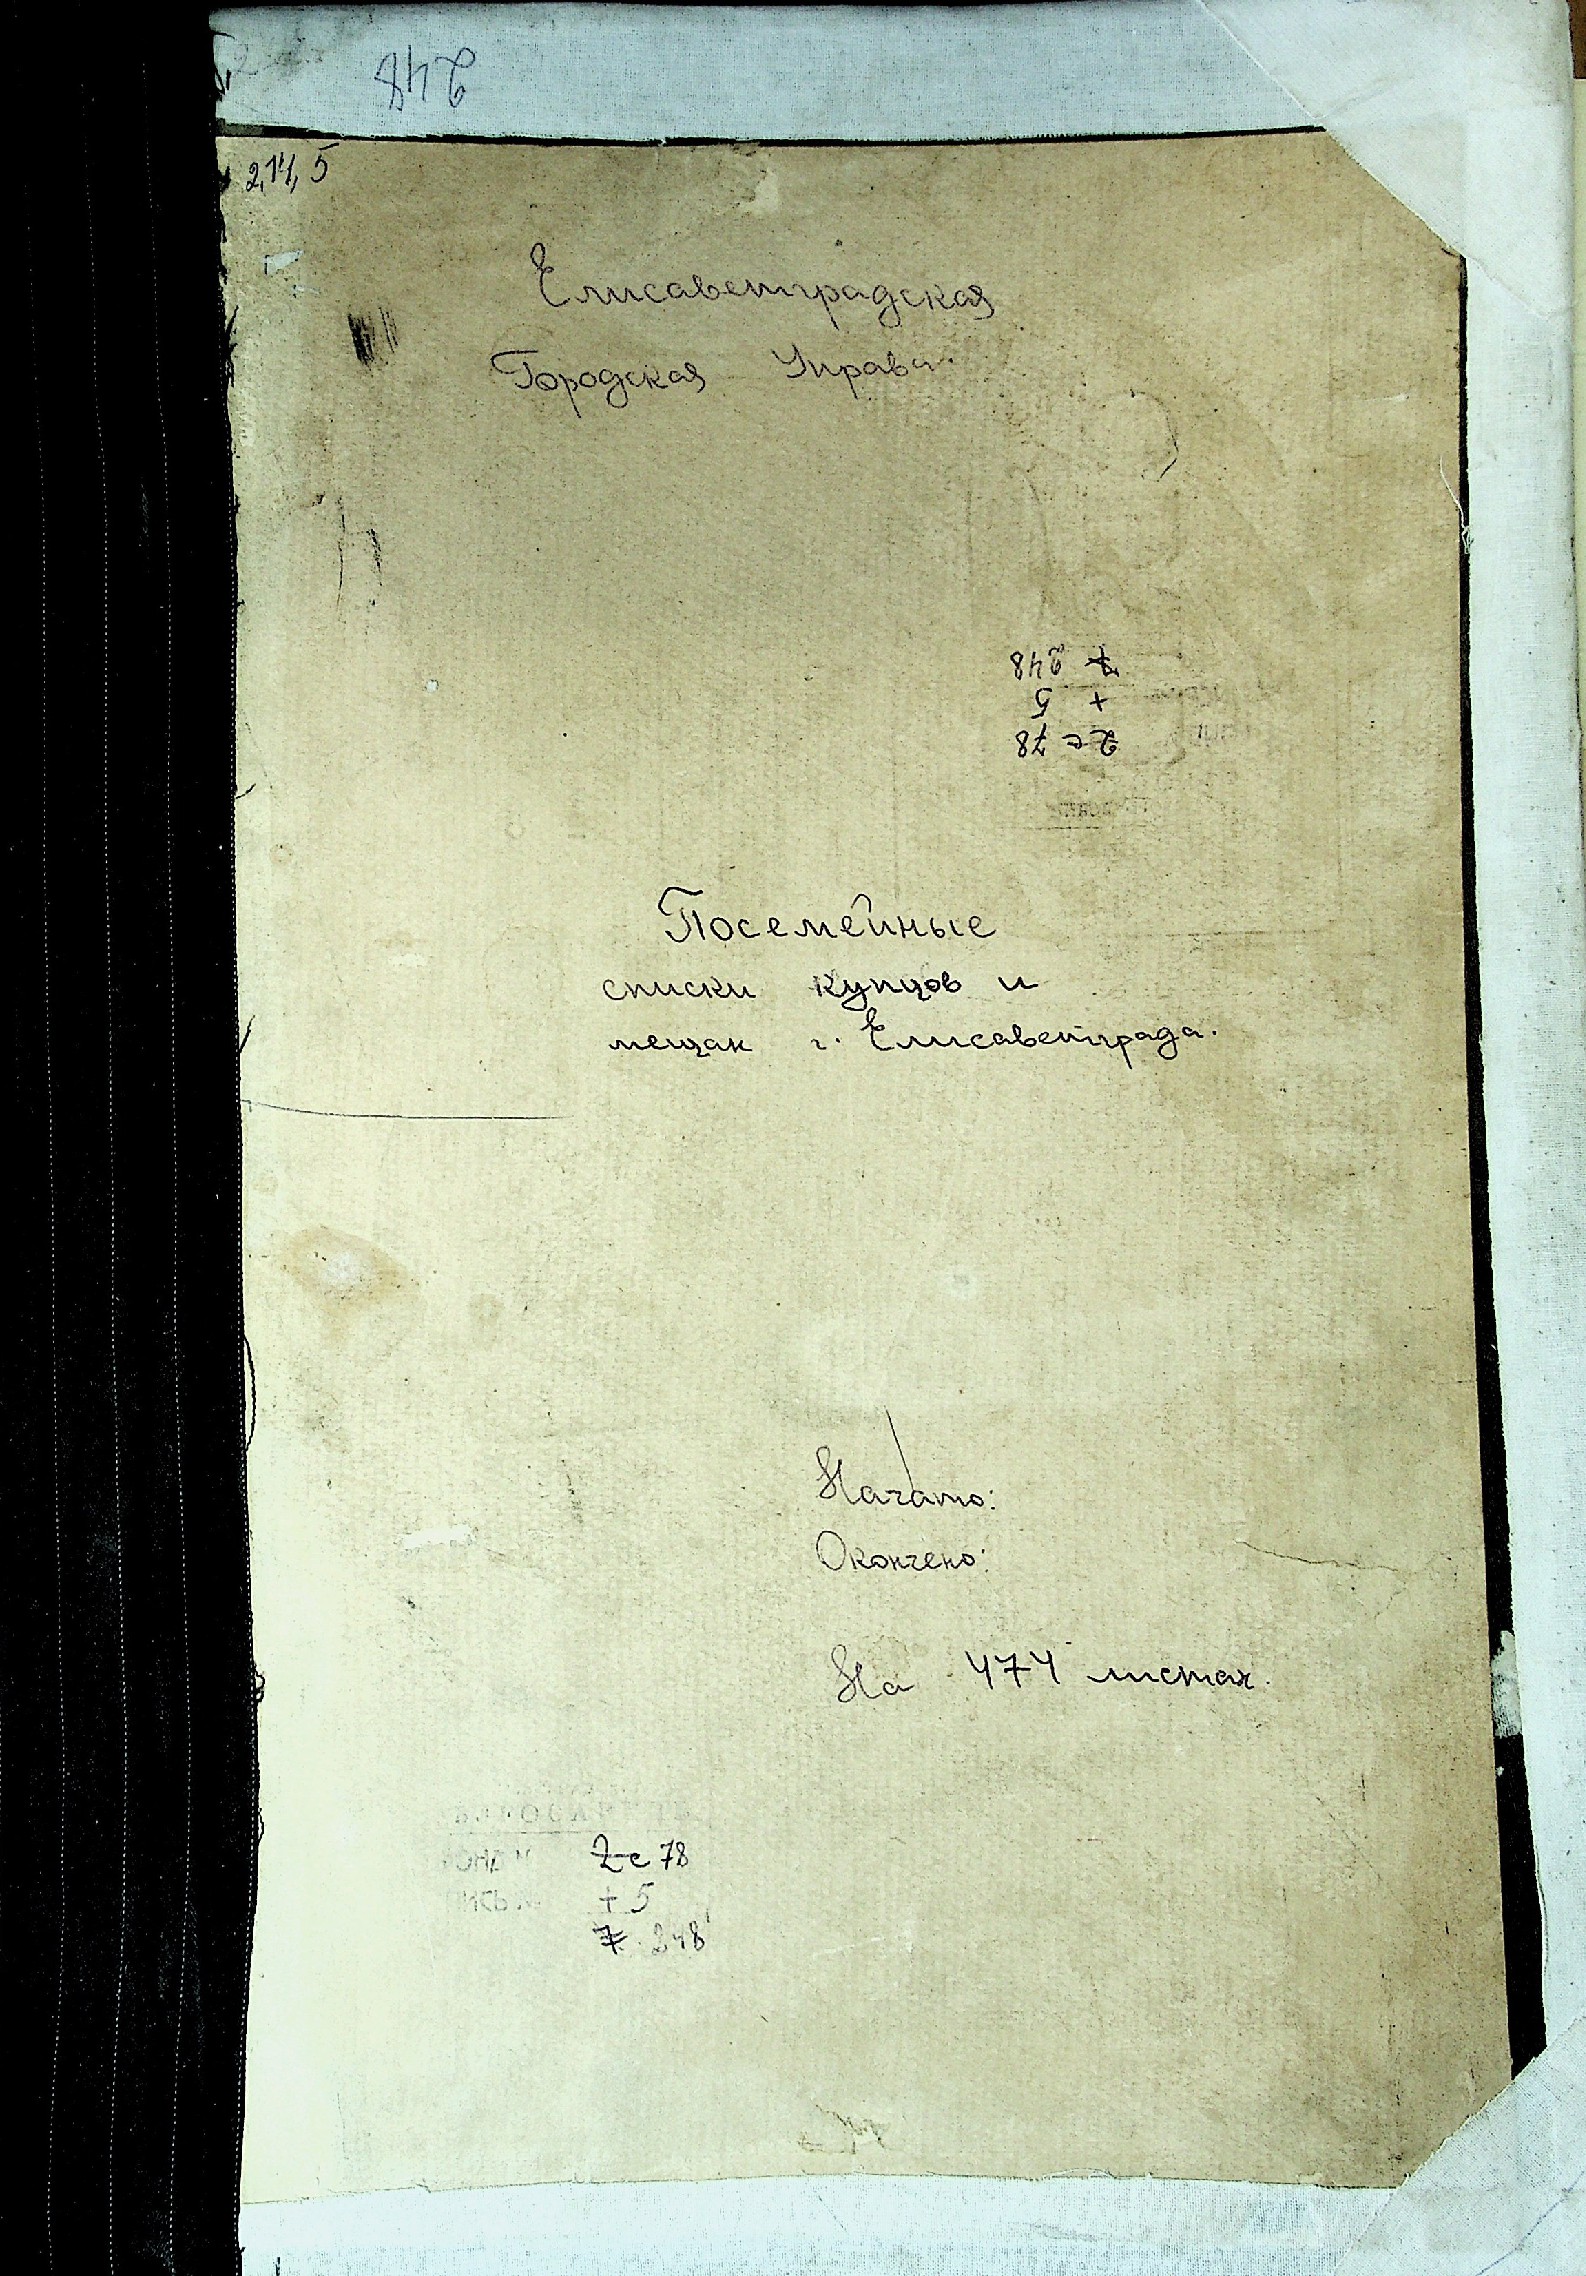 248
2,14, 5
Елисаветградская
Городская Управа.
248
+ 5
78
Посемейные
списки купцов и
мещан г. Елисаветграда.
Начато:
Окончено:
На 474 листах.
78
+ 5
248